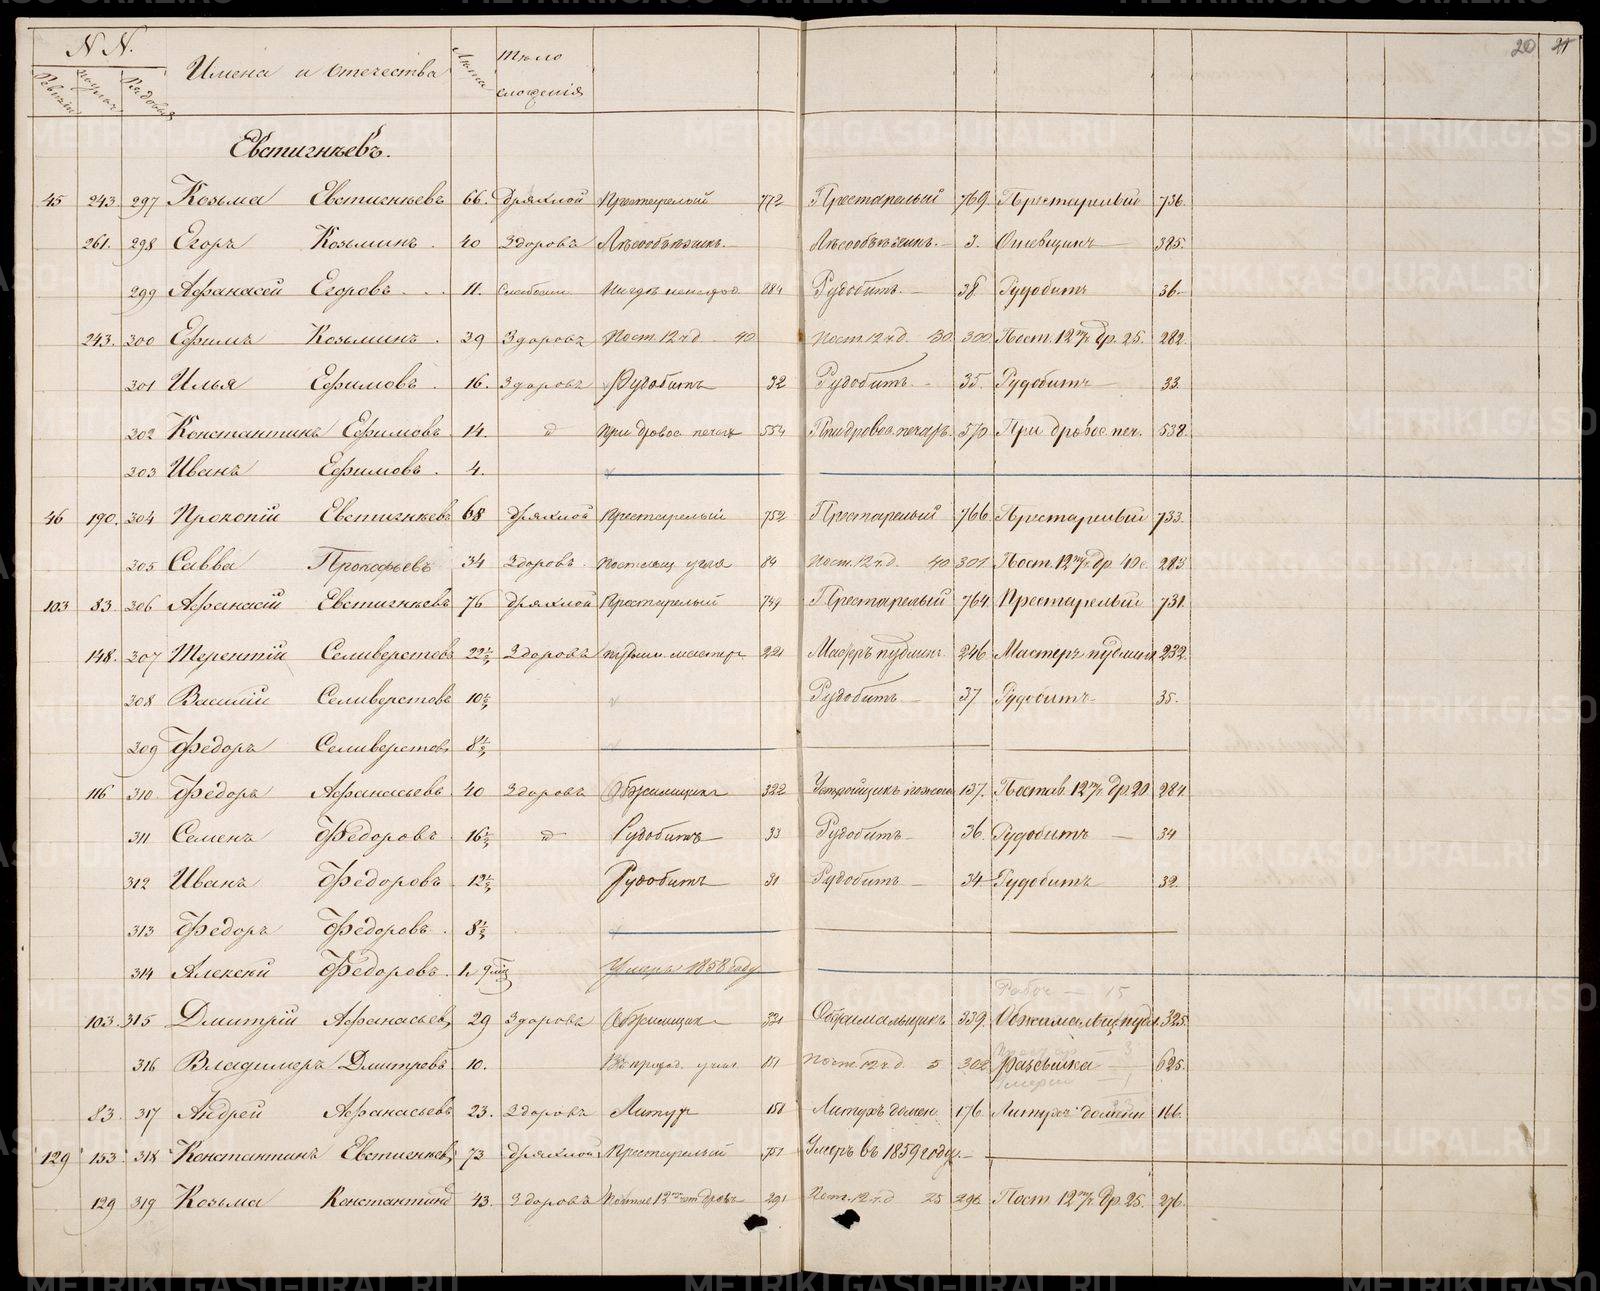 N N.
Имена и отечества
Лѣта
тѣло сложенія
20 21
Евстигнѣевъ.
45 243 297 Козьма Евстигнѣевъ 66. Дряхлой Престарелой 772 Престарелый 769 Престарелый 736.
261. 298 Егоръ Козьминъ. 40 Здоровъ Лѣсообъѣзчикъ. Лѣсообъѣзчикъ. 3. 385.
299 Афанасей Егоровъ 11. 684 Рудобитъ. 38 Рудобитъ 36.
243. 300 Ефимъ Козьминъ. 39 Здоровъ Пост. 12 ч д. 40 Пост. 12 ч. д. 30. 300 Пост. 12 чт. др. 25. 282.
301 Илья Ефимовъ. 16. Здоровъ Рудобитъ 32 Рудобитъ 35. Рудобитъ 33.
302 Константинъ Ефимовъ 14. При дровос. печах 554 При дровос. печахъ 570 При дровос. печ. 538.
303 Иванъ Ефимовъ. 4.
46 190. 304 Прокопій Евстигнѣевъ 68 Дряхлой Престарелый 752 Престарелый 766 Престарелый 733.
305 Савва Прокофьевъ 34 Здоровъ. угля 84 Пост. 12 ч. д. 40 301 Пост. 12 чт. др. 40 283
103 83. 306 Афанасій Евстигнѣевъ 76 Дряхлой Престарелый 749 Престарелый 764 Престарелый 731.
148. 307 Терентій Селиверстовъ 22½ Здоровъ пудлин. мастер 221 Мастеръ пудлинг. 246 Мастеръ пудлинг 232.
308 Василій Селиверстовъ 10½ Рудобитъ 37 Рудобитъ 35.
309 Федоръ Селиверстовъ 8½
116 310 Федоръ Афанасьевъ 40 Здоровъ Обжимщикъ 322 137. Постав. 12 чт. др. 20 284.
311 Семенъ Федоровъ. 16½ Рудобитъ 33 Рудобитъ 36 Рудобитъ 34
312 Иванъ Федоровъ. 12½ Рудобитъ 31 Рудобитъ 34 Рудобитъ 32.
313 Федоръ Федоровъ. 8½
314 Алексѣй Федоровъ. Умеръ 1858 году
Рабоч 15
103. 315 Дмитрій Афанасьевъ 29 Здоровъ Обжимщикъ 321 Обжимальщикъ 339. Обжимальщ. пудл. 325.
316 Владимеръ Дмитревъ 10. Пост. 12 ч. д. 5 302 Разсылка 625.
83. 317 Андрей Афанасьевъ 23. Здоровъ Литухъ 151 Литухъ домен. 176. Литухъ домен 166.
129 153. 318 Константинъ Евстигнѣевъ 73 Дряхлой Престарелый 751 Умеръ въ 1859 году.
129 319 Козьма Константиновъ 43. Здоровъ 12 чет. дровъ 291 Пост. 12 ч. д 25 296. Пост 12 чт. др. 25. 276.